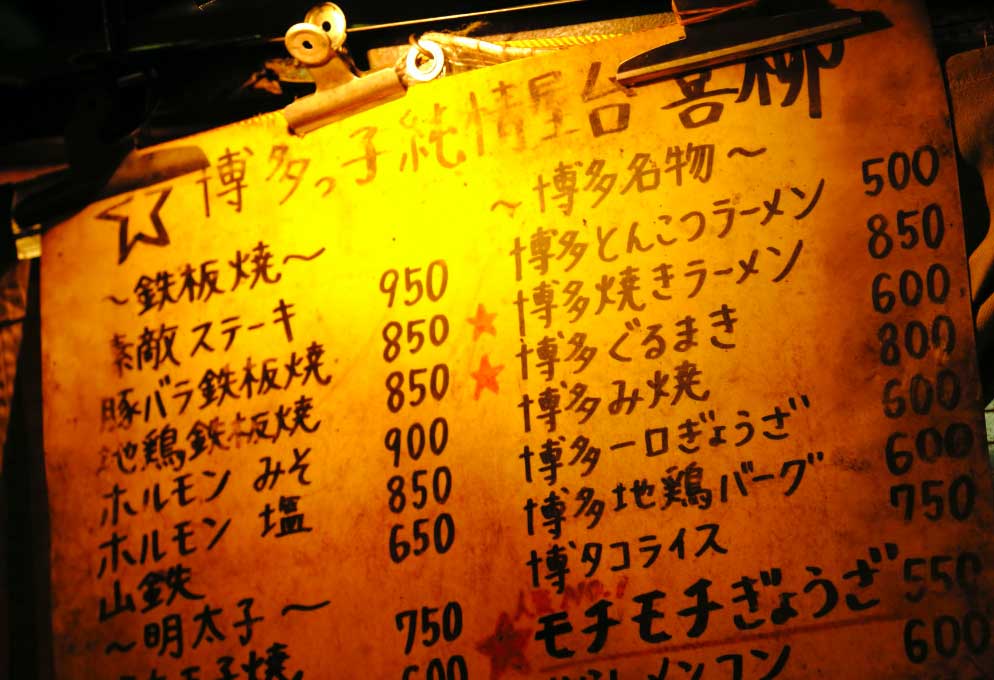 ☆博多っ子純情屋台 喜柳
~鉄板焼~
素敵ステーキ 950
豚バラ鉄板焼 850
地鶏鉄板焼 850
ホルモン みそ 900
ホルモン 塩 850
山鉄 650
~明太子~
玉子焼 750
600
~博多名物~
博多とんこつラーメン 500
★ 博多焼きラーメン 850
★ 博多ぐるまき 600
博多み焼 800
博多一口ぎょうざ 600
博多地鶏バーグ 600
博タコライス 750
人気NO.1
★ モチモチぎょうざ 550
メンコン 600